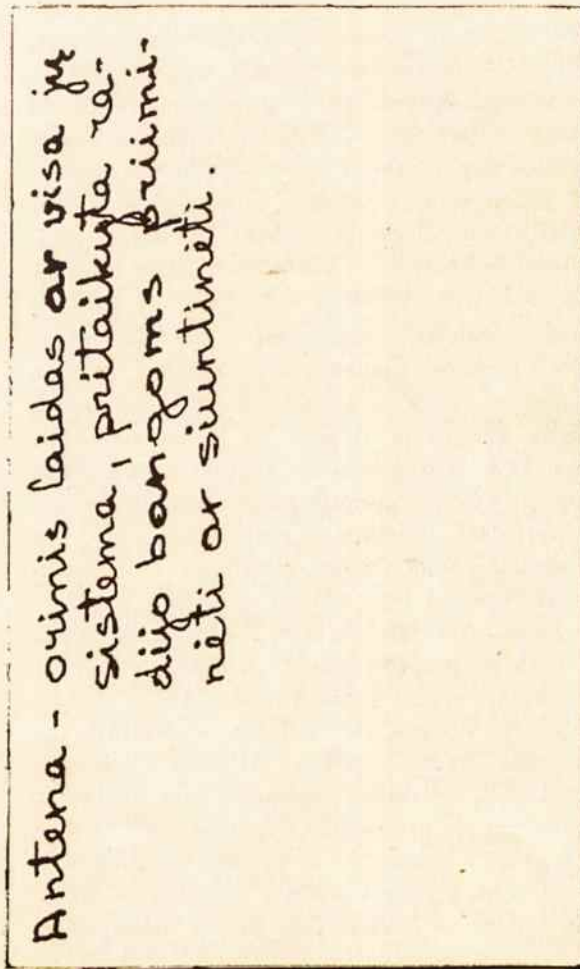 Antena - orinis laidas ar visa jų
sistema, pritaikyta ra-
dijo bangoms priimi-
nėti ar siuntinėti.